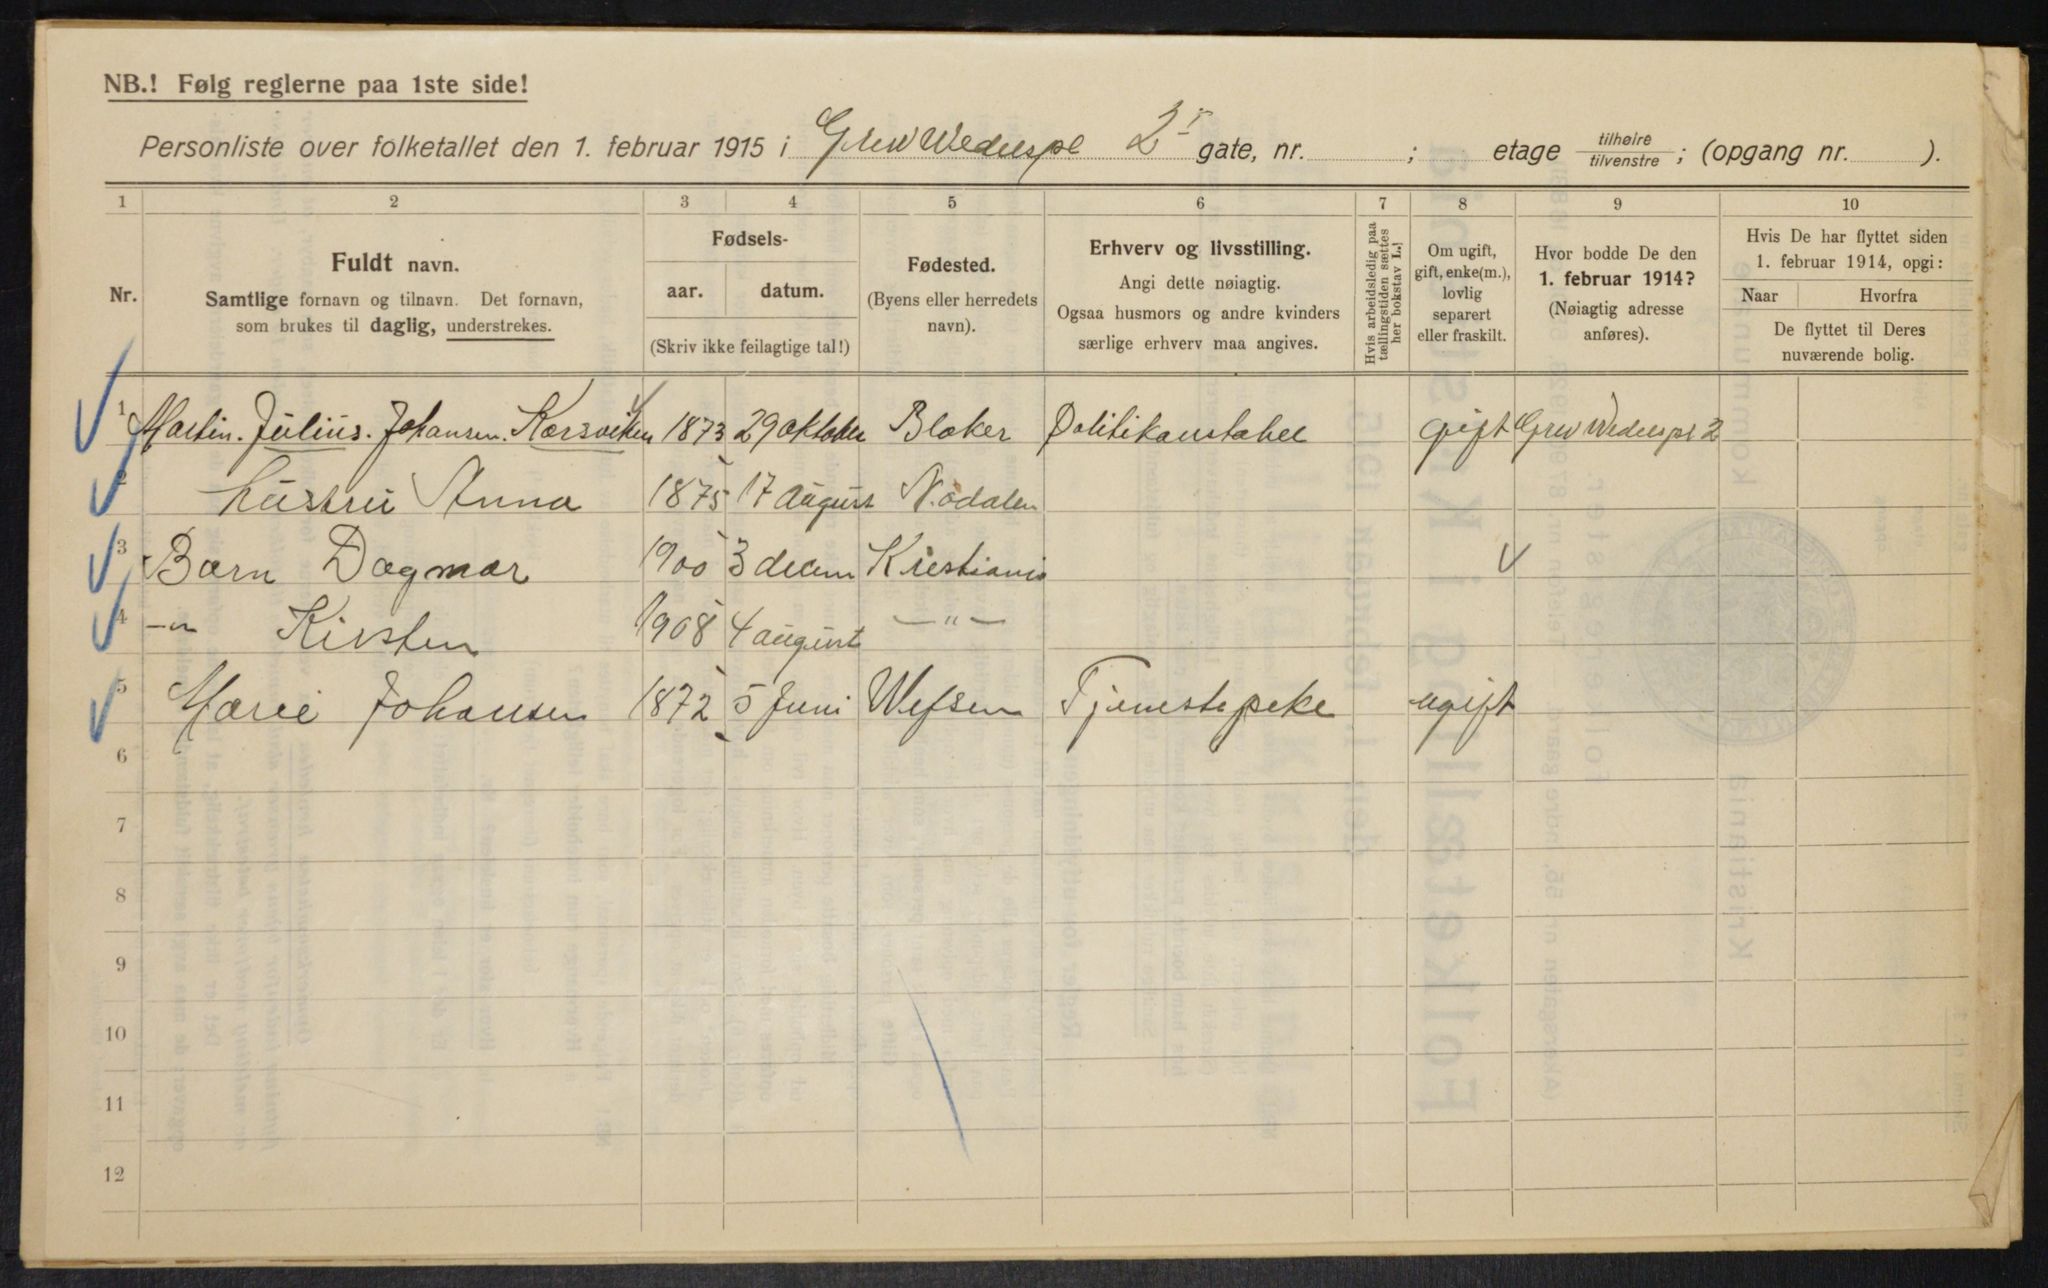 NB.! Følg reglerne paa 1ste side!
Personliste over folketallet den 1. februar 1915 i Grev Wedelspl 2 gate, nr. ; etage tilhøire / tilvenstre ; (opgang nr. ).
1 2 3 4 5 6 7 8 9 10
Nr.
Fuldt navn.
Samtlige fornavn og tilnavn. Det fornavn,
som brukes til daglig, understrekes.
Fødsels-
aar. datum.
(Skriv ikke feilagtige tal!)
Fødested.
(Byens eller herredets
navn).
Erhverv og livsstilling.
Angi dette nøiagtig.
Ogsaa husmors og andre kvinders
særlige erhverv maa angives.
Hvis arbeidsledig paa
tællingstiden sættes
her bokstav L.!
Om ugift,
gift, enke(m.),
lovlig
separert
eller fraskilt.
Hvor bodde De den
1. februar 1914?
(Nøiagtig adresse
anføres).
Hvis De har flyttet siden
1. februar 1914, opgi:
Naar Hvorfra
De flyttet til Deres
nuværende bolig.
1 Martin. Julius. Johansen. Korsviken 1873 29 oktober Blaker Politikonstabel gift Grev Wedelspl 2
2 hustru Anna 1875 17 august N. odalen
3 Barn Dagmar 1900 3 decem Kristiania
4 —„— Kirsten 1908 4 august —„—
5 Marie Johansen 1872 5 Juni Wefsen Tjenestepike ugift
6
7
8
9
10
11
12